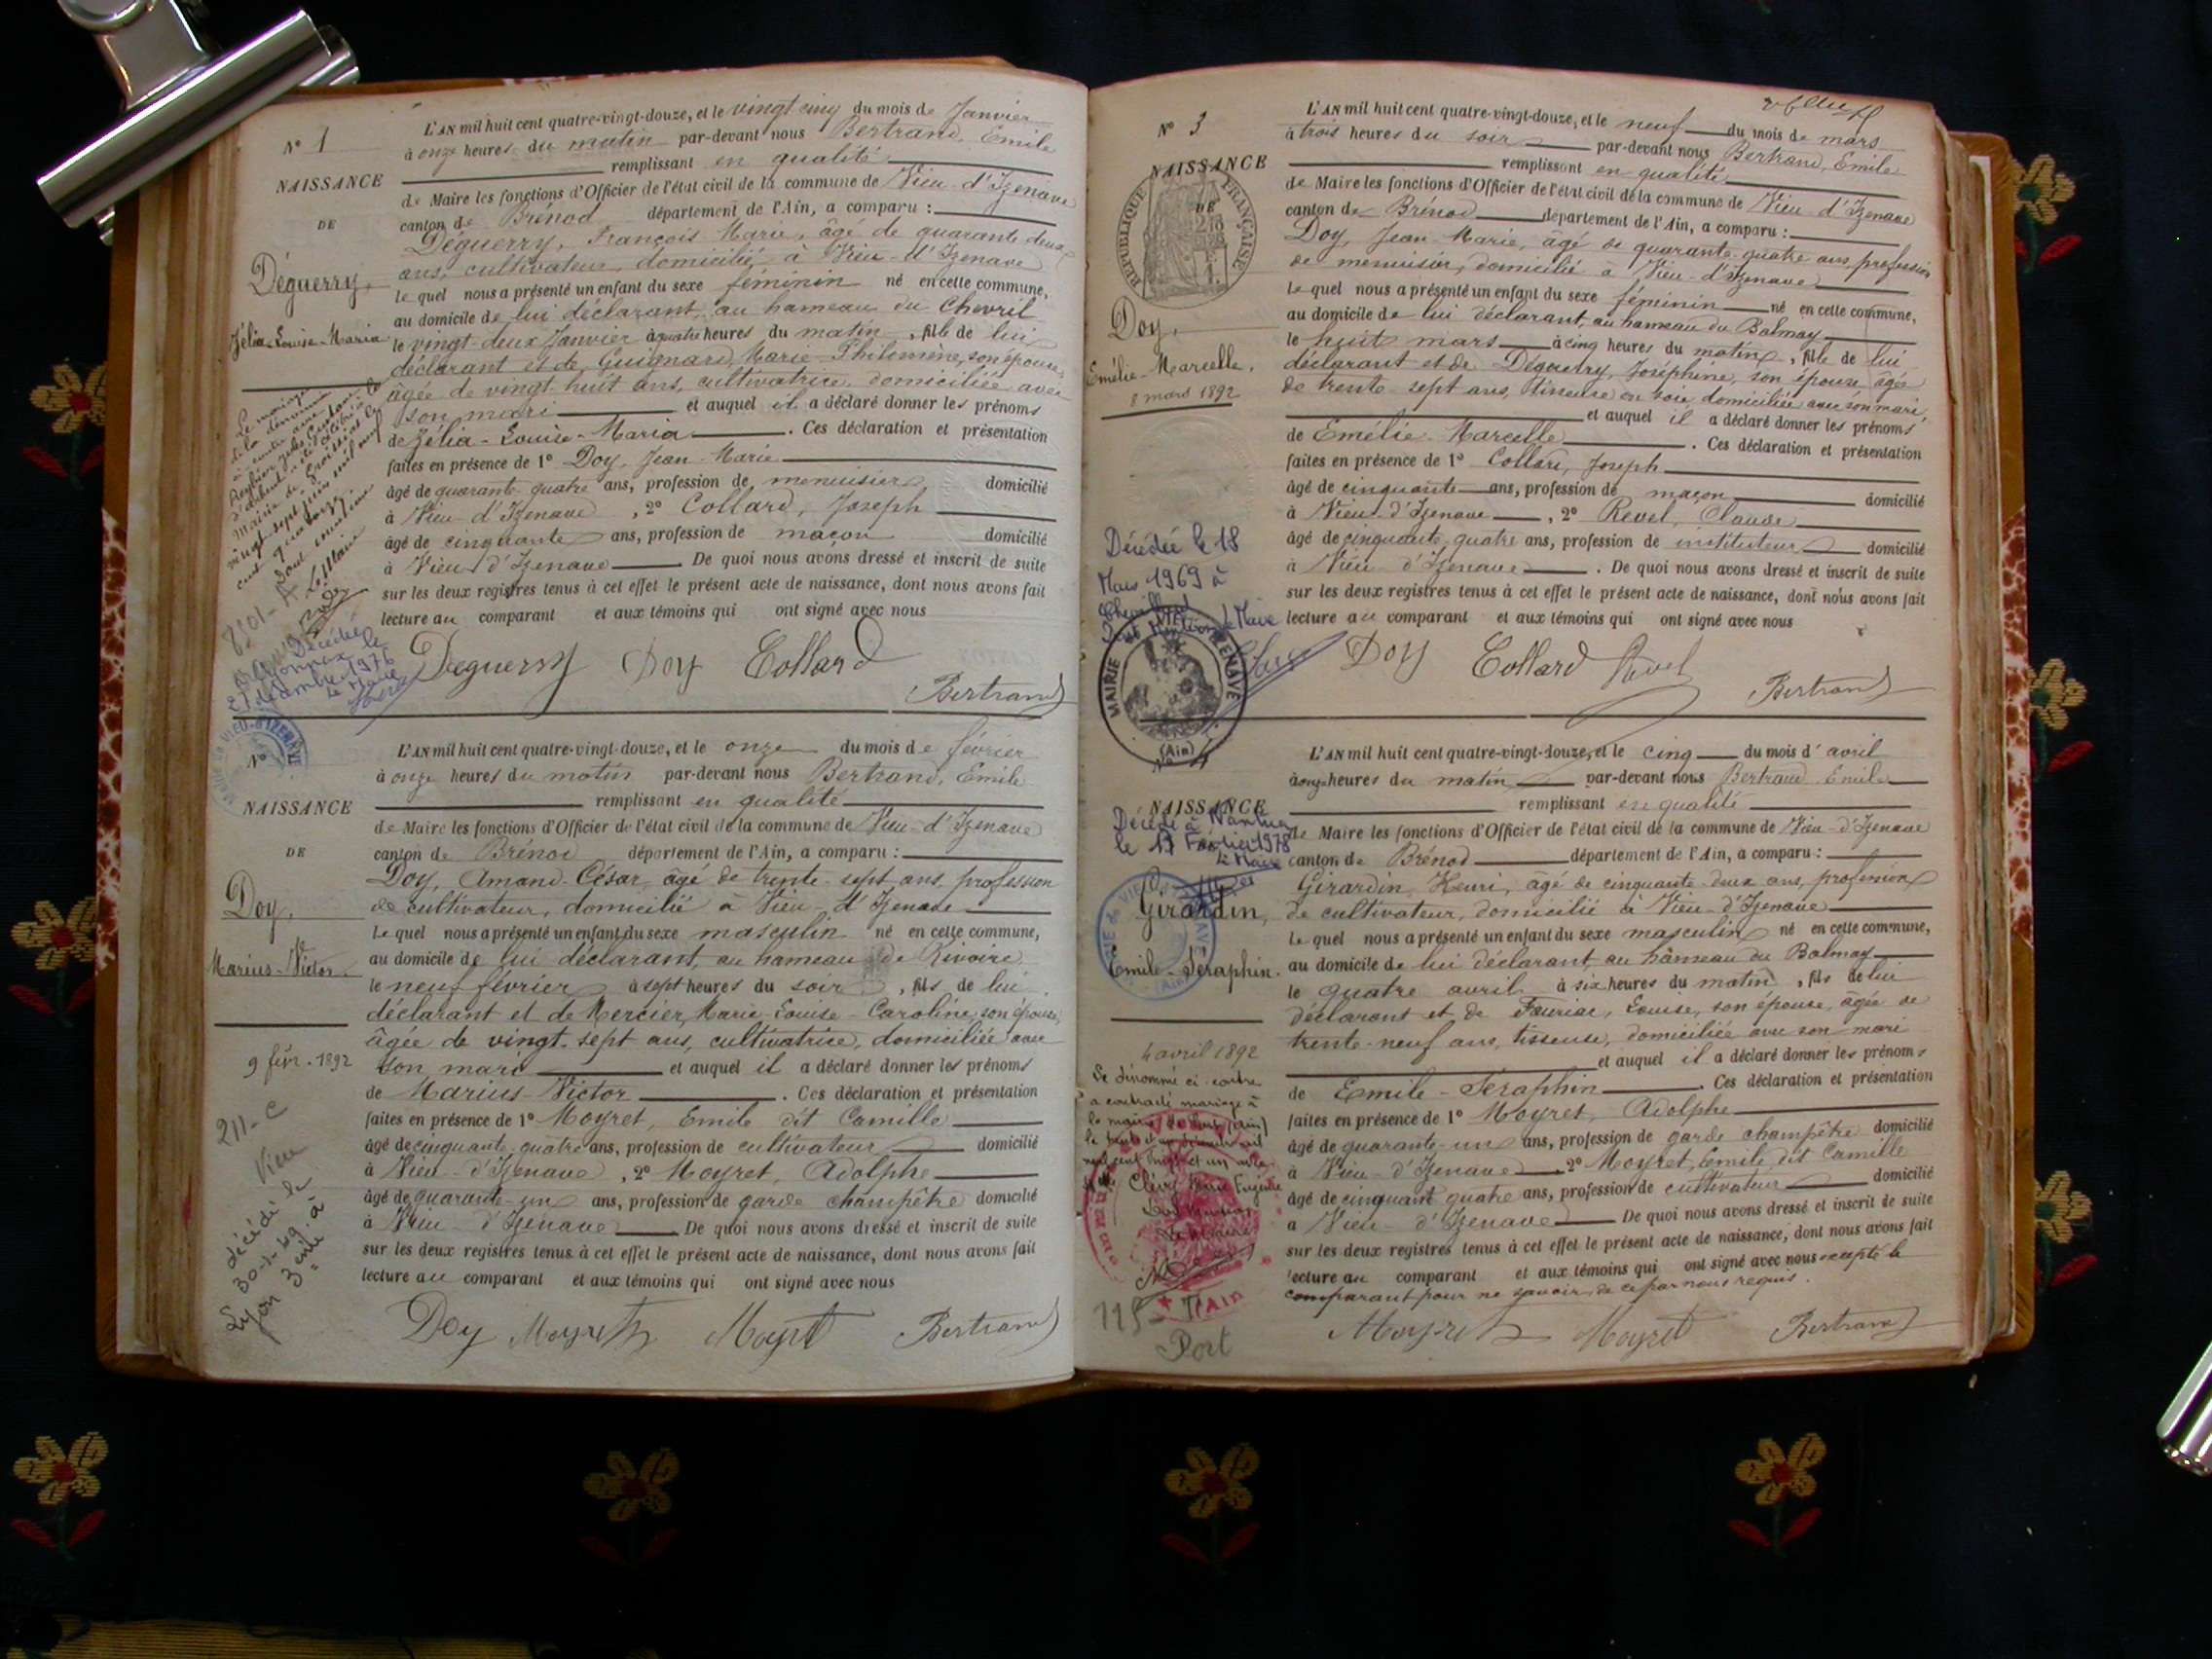 N° 1
NAISSANCE
DE
Déguerry,
Zélia-Louise-Maria
L'AN mil huit cent quatre-vingt-douze, et le vingt cinq du mois de Janvier
à onze heures du matin par-devant nous Bertrand, Emile
remplissant en qualité
de Maire les fonctions d'Officier de l'état civil de la commune de Vieu-d'Izenave
canton de Brénod département de l'Ain, a comparu :
Déguerry, François-Marie, âgé de quarante deux
ans, cultivateur, domicilié à Vieu-d'Izenave
lequel nous a présenté un enfant du sexe féminin né en cette commune,
au domicile de lui déclarant, au hameau du Chevril
le vingt-deux Janvier à quatre heures du matin, fille de lui
déclarant et de Guignard, Marie-Philomène, son épouse,
âgée de vingt-huit ans, cultivatrice, domiciliée avec
son mari et auquel il a déclaré donner les prénoms
de Zélia-Louise-Maria. Ces déclaration et présentation
faites en présence de 1° Doy, Jean-Marie
âgé de quarante-quatre ans, profession de menuisier domicilié
à Vieu-d'Izenave, 2° Collard, Joseph
âgé de cinquante ans, profession de maçon domicilié
à Vieu d'Izenave. De quoi nous avons dressé et inscrit de suite
sur les deux registres tenus à cet effet le présent acte de naissance, dont nous avons fait
lecture au comparant et aux témoins qui ont signé avec nous
Déguerry Doy Collard
Bertrand
Le mariage
de la dénommée
vingt-sept juin mil neuf
cent quatorze.
Dont mention
Le Maire
Décédée
à Oyonnax le
27 décembre 1976
Le Maire
NAISSANCE
DE
Doy,
Marius-Victor.
9 févr. 1892
211-C
Vieu
décédé le
30-1-49 à
Lyon 3ème
L'AN mil huit cent quatre-vingt-douze, et le onze du mois de février
à onze heures du matin par-devant nous Bertrand, Emile
remplissant en qualité
de Maire les fonctions d'Officier de l'état civil de la commune de Vieu-d'Izenave
canton de Brénod département de l'Ain, a comparu :
Doy, Amand-César, âgé de trente-sept ans, profession
de cultivateur, domicilié à Vieu-d'Izenave
lequel nous a présenté un enfant du sexe masculin né en cette commune,
au domicile de lui déclarant, au hameau de Rivoire
le neuf février à sept heures du soir, fils de lui
déclarant et de Mercier, Marie-Louise-Caroline, son épouse,
âgée de vingt-sept ans, cultivatrice, domiciliée avec
son mari et auquel il a déclaré donner les prénoms
de Marius-Victor. Ces déclaration et présentation
faites en présence de 1° Moyret, Emile dit Camille
âgé de cinquante quatre ans, profession de cultivateur domicilié
à Vieu-d'Izenave, 2° Moyret, Adolphe
âgé de quarante-un ans, profession de garde champêtre domicilié
à Vieu-d'Izenave. De quoi nous avons dressé et inscrit de suite
sur les deux registres tenus à cet effet le présent acte de naissance, dont nous avons fait
lecture au comparant et aux témoins qui ont signé avec nous
Doy Moyret Moyret Bertrand
N° 3
NAISSANCE
DE
RÉPUBLIQUE FRANÇAISE
Doy,
Emélie-Marcelle.
8 mars 1892
Décédée le 18
Mars 1969 à
Chevillard
Dont Mention le Maire
MAIRIE
IZENAVE
(Ain)
L'AN mil huit cent quatre-vingt-douze, et le neuf du mois de mars
à trois heures du soir par-devant nous Bertrand, Emile
remplissant en qualité
de Maire les fonctions d'Officier de l'état civil de la commune de Vieu-d'Izenave
canton de Brénod département de l'Ain, a comparu :
Doy, Jean-Marie, âgé de quarante-quatre ans, profession
de menuisier, domicilié à Vieu-d'Izenave
lequel nous a présenté un enfant du sexe féminin né en cette commune,
au domicile de lui déclarant, au hameau du Balmay
le huit mars à cinq heures du matin, fille de lui
déclarant et de Déguerry, Joséphine, son épouse âgée
de trente-sept ans, tisseuse en soie, domiciliée avec son mari,
et auquel il a déclaré donner les prénoms
de Emélie-Marcelle. Ces déclaration et présentation
faites en présence de 1° Collard, Joseph
âgé de cinquante ans, profession de maçon domicilié
à Vieu-d'Izenave, 2° Revel, Claude
âgé de cinquante quatre ans, profession de instituteur domicilié
à Vieu-d'Izenave. De quoi nous avons dressé et inscrit de suite
sur les deux registres tenus à cet effet le présent acte de naissance, dont nous avons fait
lecture au comparant et aux témoins qui ont signé avec nous
Doy Collard Revel
Bertrand
N° 4
NAISSANCE
Décédé à Nantua
le 17 Février 1978
Le Maire
Girardin,
Emile-Séraphin.
4 avril 1892
Le dénommé ci-contre
a contracté mariage à
la mairie de Port (Ain)
Le Maire
Ain
Port
L'AN mil huit cent quatre-vingt-douze, et le cinq du mois d'avril
à onze heures du matin par-devant nous Bertrand Emile
remplissant en qualité
de Maire les fonctions d'Officier de l'état civil de la commune de Vieu-d'Izenave
canton de Brénod département de l'Ain, a comparu :
Girardin, Henri, âgé de cinquante-deux ans, profession
de cultivateur, domicilié à Vieu-d'Izenave
lequel nous a présenté un enfant du sexe masculin né en cette commune,
au domicile de lui déclarant, au hameau du Balmay
le quatre avril à six heures du matin, fils de lui
déclarant et de Louise, son épouse, âgée de
trente-neuf ans, tisseuse, domiciliée avec son mari
et auquel il a déclaré donner les prénoms
de Emile-Séraphin. Ces déclaration et présentation
faites en présence de 1° Moyret, Adolphe
âgé de quarante-un ans, profession de garde champêtre domicilié
à Vieu-d'Izenave 2° Moyret, Emile dit Camille
âgé de cinquante quatre ans, profession de cultivateur domicilié
à Vieu-d'Izenave. De quoi nous avons dressé et inscrit de suite
sur les deux registres tenus à cet effet le présent acte de naissance, dont nous avons fait
lecture au comparant et aux témoins qui ont signé avec nous excepté le
comparant pour ne savoir, de ce par nous requis.
Moyret Moyret Bertrand